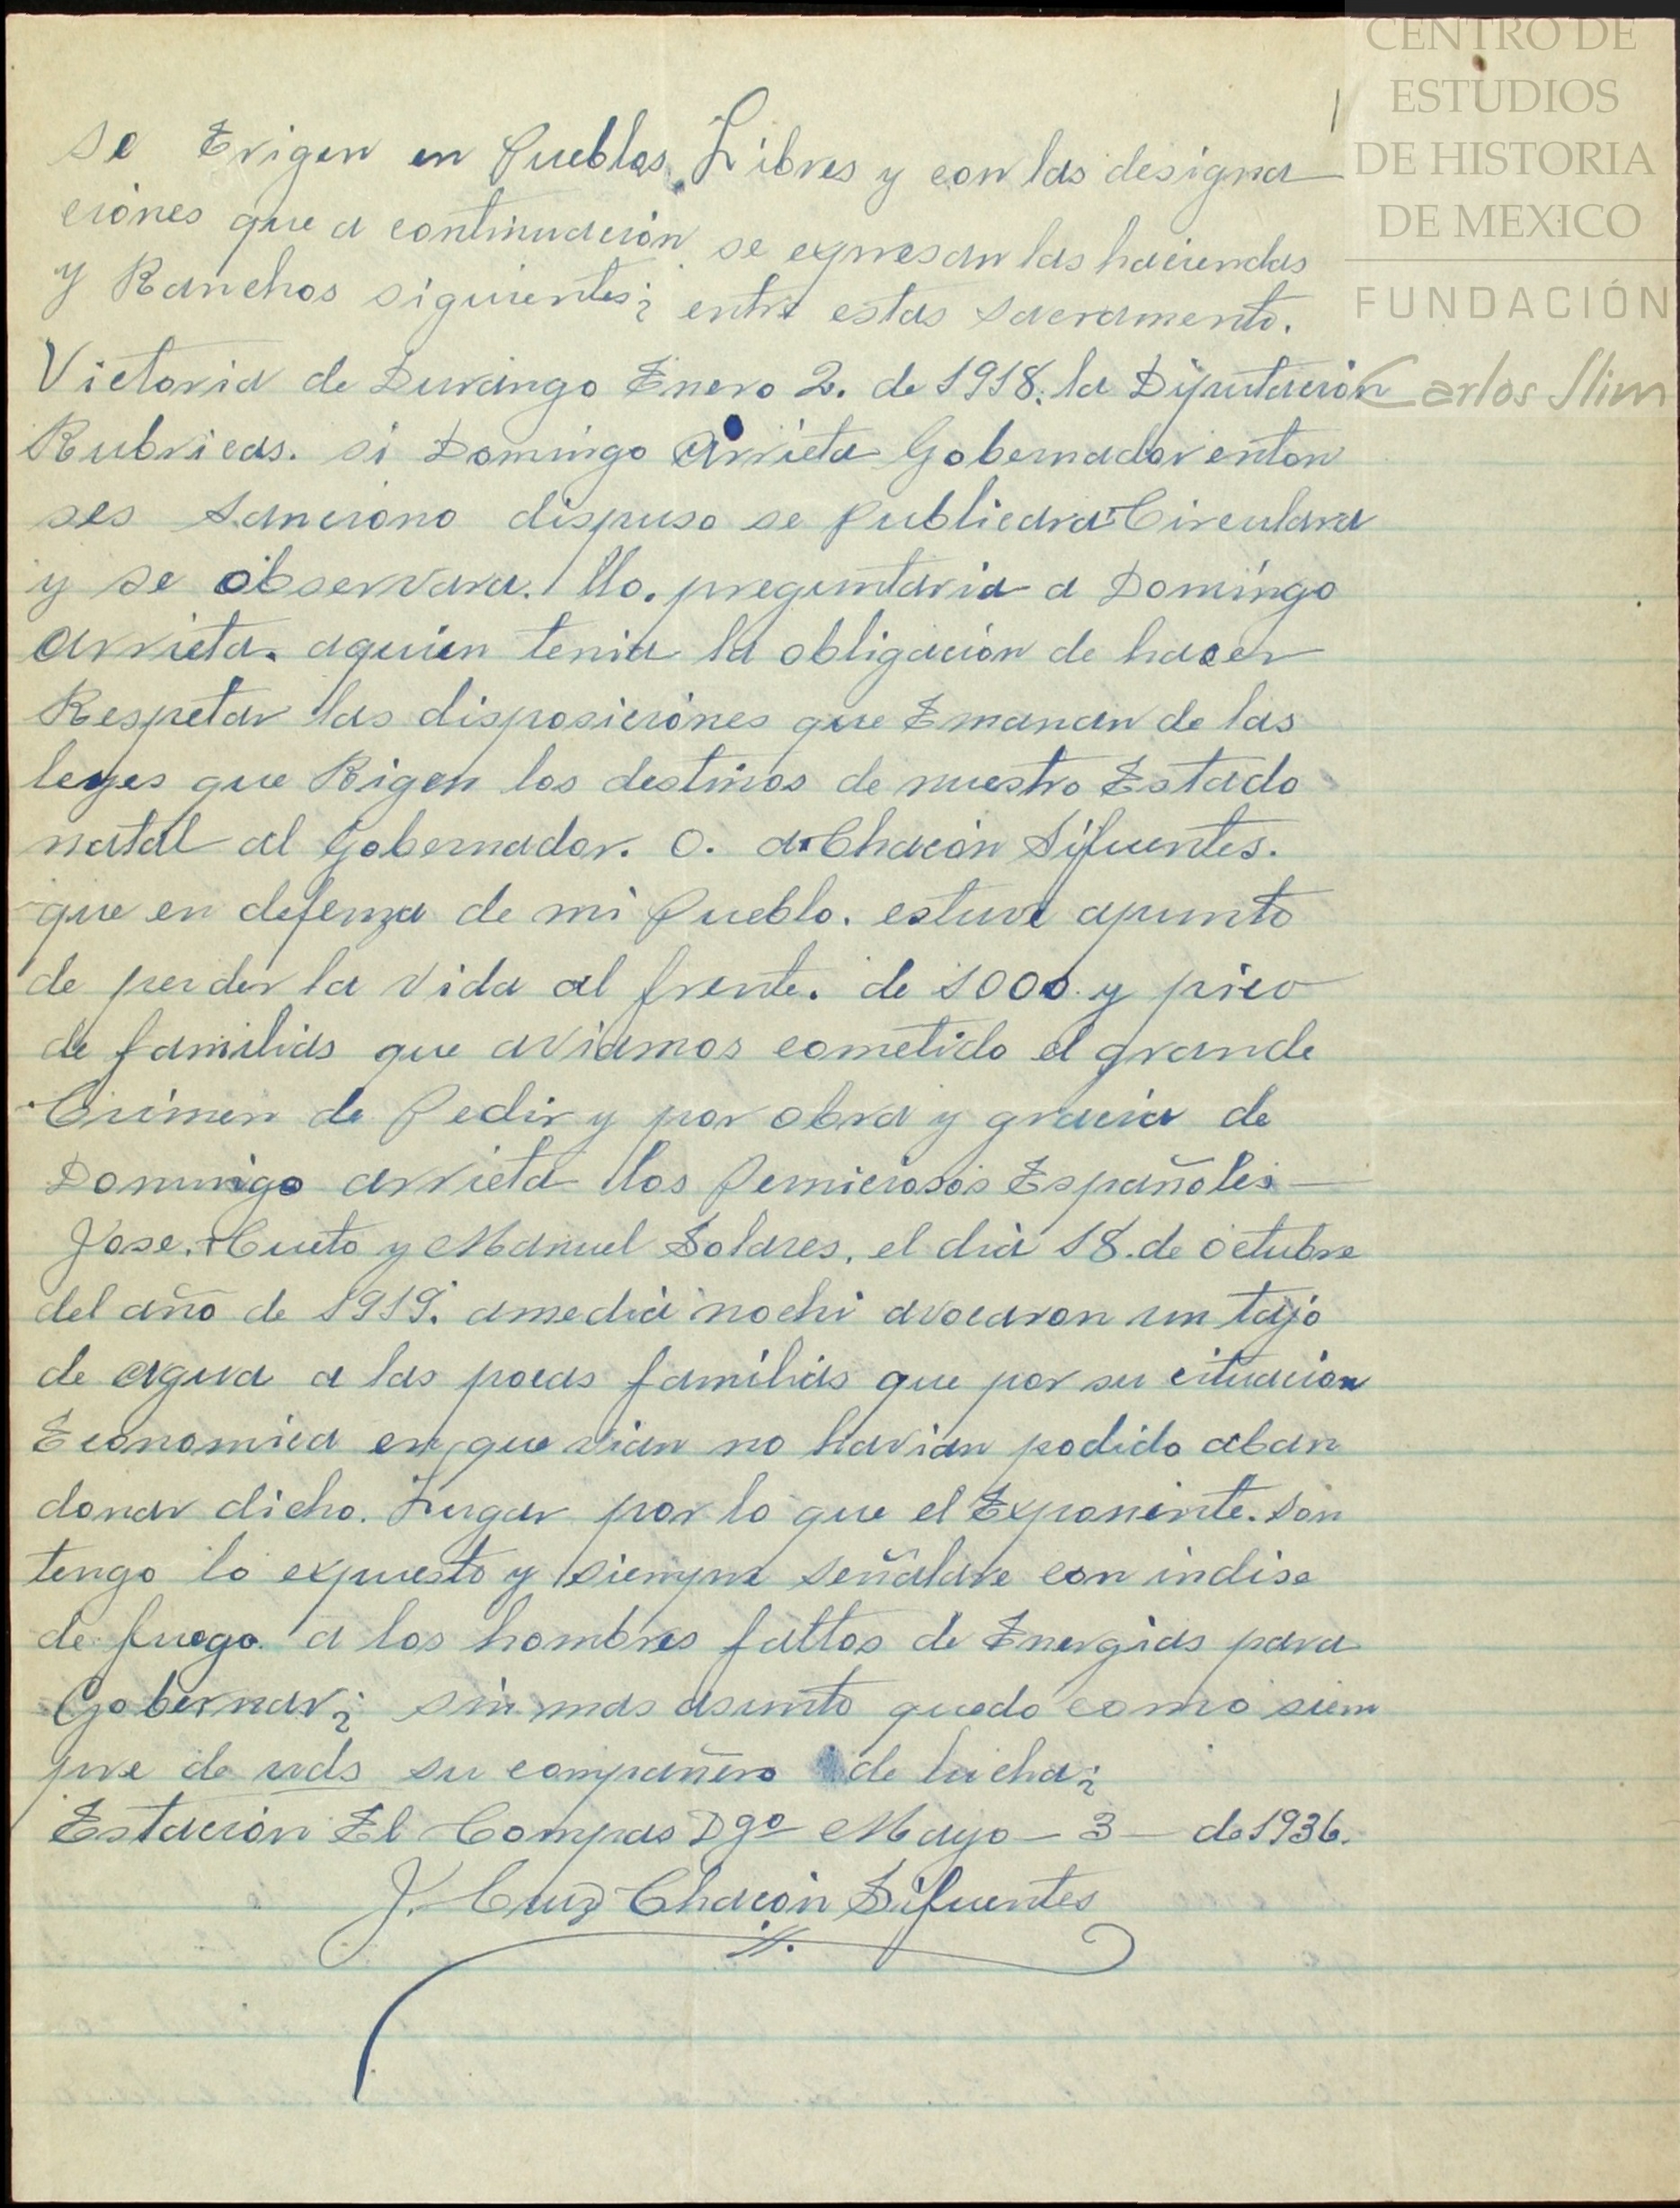 CENTRO DE
ESTUDIOS
DE HISTORIA
DE MEXICO
FUNDACIÓN
Carlos Slim
se Erigen en Pueblos Libres y con las designa
ciones que a continuación se expresan las haciendas
y Ranchos siguientes; entre estas Sacramento.
Victoria de Durango Enero 2. de 1918. la Diputación
Rubricas. si Domingo Arrieta Gobernador enton
ses Sanciono dispuso se Publicara Circulara
y se observara. Llo. preguntaria a Domingo
Arrieta. aquien tenia la obligación de hacer
Respetar las disposiciónes que Emanan de las
leyes que Rigen los destinos de nuestro Estado
natal al Gobernador. O. a Chacón Sifuentes.
que en defenza de mi Pueblo. estuve apunto
de perder la Vida al frente. de 1000 y pico
de familias que aviamos cometido el grande
Crimen de Pedir y por obra y gracia de
Domingo Arrieta los Perniciosos Españoles
Jose. Cueto y Manuel Solares, el dia 18. de octubre
del año de 1919. amedia nochi avocaron un tajo
de agua a las pocas familias que por su cituacion
Economica en que vian no havian podido aban
donar dicho. Lugar por lo que el Exponente. Son
tengo lo expuesto y siempre señalare con indise
de fuego a los hombres faltos de Energias para
Gobernar; sin mas asunto quedo como siem
pre de uds su compañero de lucha;
Estación El Compas Dgo Mayo - 3 - de 1936.
J. Cruz Chacón Sifuentes